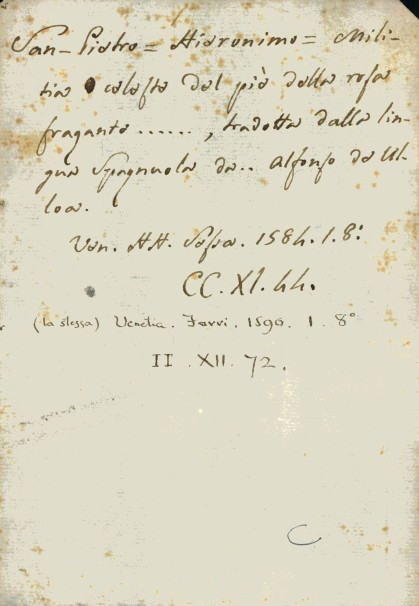 San-Pietro = Hieronimo = Mili-
tia celeste del piè della rosa
fragante ......, tradotta dalla lin-
gua Spagnuola da.. Alfonso de Ul-
loa.
Ven. HH. Sessa. 1584. 1. 8º
CC. XI. 44.
(la stessa) Venetia. 1590. 1. 8º
II. XII. 72.
C